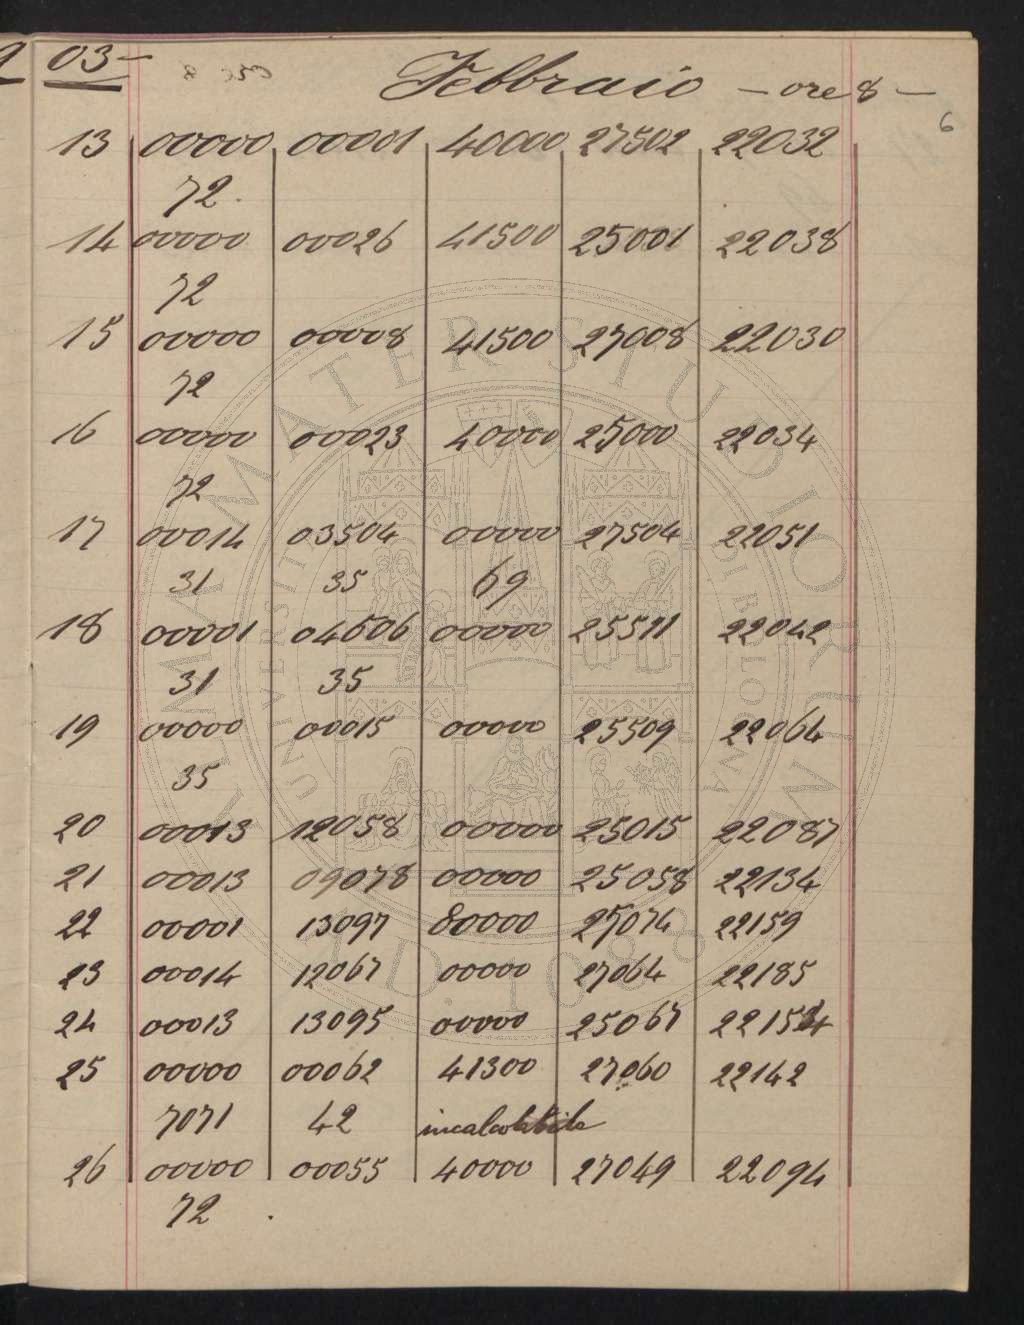 03-
Febbraio - ore 8 -
6
13 00000 00001 40000 27502 22032
72.
14 00000 00026 41500 25001 22038
72
15 00000 00008 41500 27008 22030
72
16 00000 00023 40000 25000 22034
72
17 00014 03504 00000 27504 22051
31 35 69
18 00001 04506 00000 25511 22042
31 35
19 00000 00015 00000 25509 22064
35
20 00013 12058 00000 25015 22087
21 00013 09078 00000 25058 22134
22 00001 13097 80000 25074 22159
23 00014 12067 00000 27064 22185
24 00013 13095 00000 25067 22154
25 00000 00062 41300 27060 22142
7071 42 incalcolabile
26 00000 00055 40000 27049 22094
72 .
ALMA MATER STUDIORUM
UNIVERSITÀ DI BOLOGNA
A.D. 1088